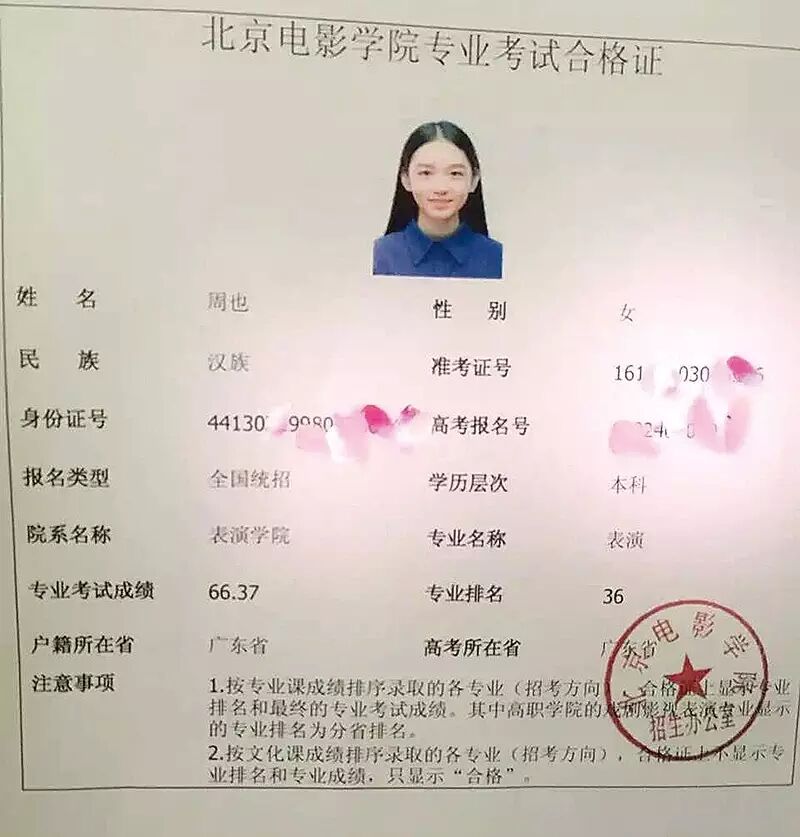 北京电影学院专业考试合格证
姓 名 周也 性 别 女
民 族 汉族 准考证号 161 030
身份证号 44130 9980 高考报名号
报名类型 全国统招 学历层次 本科
院系名称 表演学院 专业名称 表演
专业考试成绩 66.37 专业排名 36
户籍所在省 广东省 高考所在省 广东省
注意事项 1.按专业课成绩排序录取的各专业（招考方向），合格证上显示专业
排名和最终的专业考试成绩。其中高职学院的戏剧影视表演专业显示
的专业排名为分省排名。
2.按文化课成绩排序录取的各专业（招考方向），合格证上不显示专
业排名和专业成绩，只显示“合格”。
北京电影学院
招生办公室